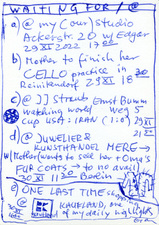 WAITING FOR /
a) @ my (our) studio
Ackerstr. 20 w/ Edgar
29 XI 2022 17
b) Mother to finish her
CELLO practice in
Reinickendorf 29 XI 18
c) @ JJ Strent Ernst Bumm
watching world
cup USA : IRAN (1:0) 29 XI
d) @ JUWELIER &
KUNSTHANDEL MERG →
w/ Mother wants to sell her + Oma's
FUR COATS → to no avail
30 XI 11 Berlin
e) ONE LAST TIME
@ KAUFLAND, one
of my daily highlights